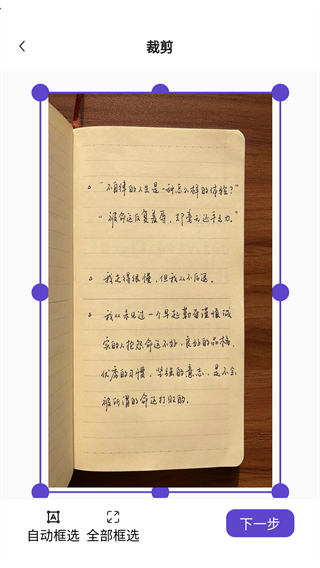 裁剪
。“不自律的人生是一种怎么样的体验？”
“被命运反复羞辱，却毫无还手之力。”
。我走得很慢，但我从不后退。
。我从未见过一个早起勤奋谨慎诚
实的人抱怨命运不好，良好的品格，
优良的习惯，坚强的意志，是不会
被所谓的命运打败的。
自动框选 全部框选
下一步